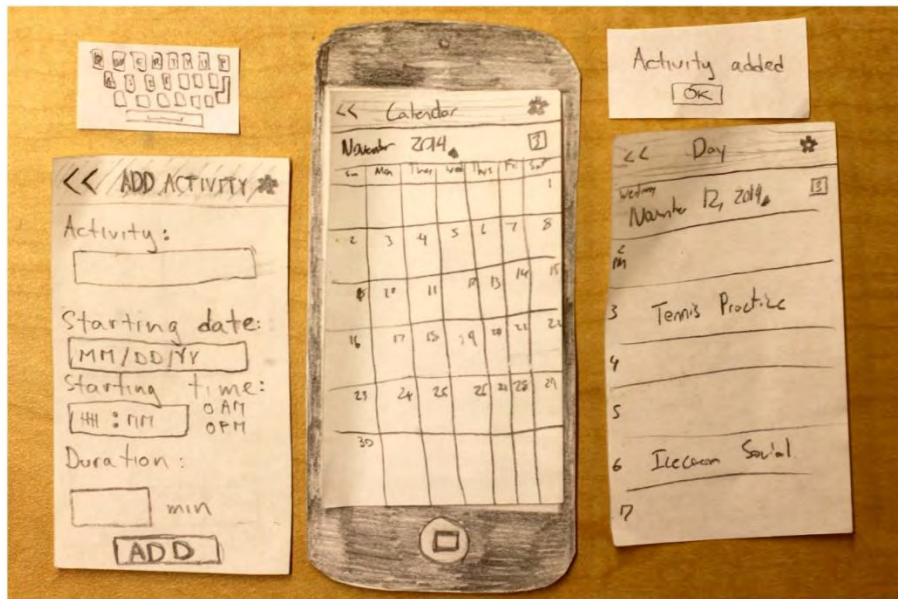 Q W E R T Y U
<< ADD ACTIVITY
Activity:
Starting date:
MM/DD/YY
Starting time:
HH : MM
O AM
O PM
Duration:
min
ADD
<< Calendar
November 2014
3
Sun Mon Tues Wed Thus Fri Sat
1
2 3 4 5 6 7 8
10 11 12 13 14 15
16 17 18 19 20 21 22
23 24 25 26 28 29
30
Activity added
OK
<< Day
Wednesday
November 12, 2014
3
2
PM
3 Tennis Practice
4
5
6 Icecream Social
7